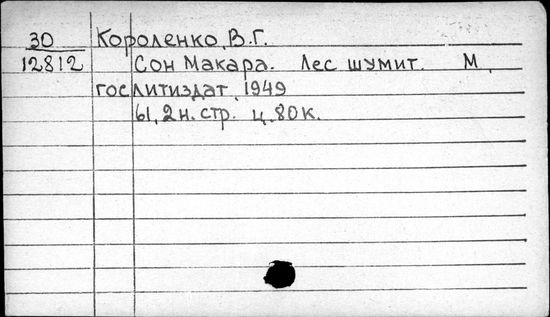 30 Короленко, В.Г.
12812 Сон Макара. Лес шумит. М,
гослитиздат, 1949
61, 2 н. стр. ц. 80 к.